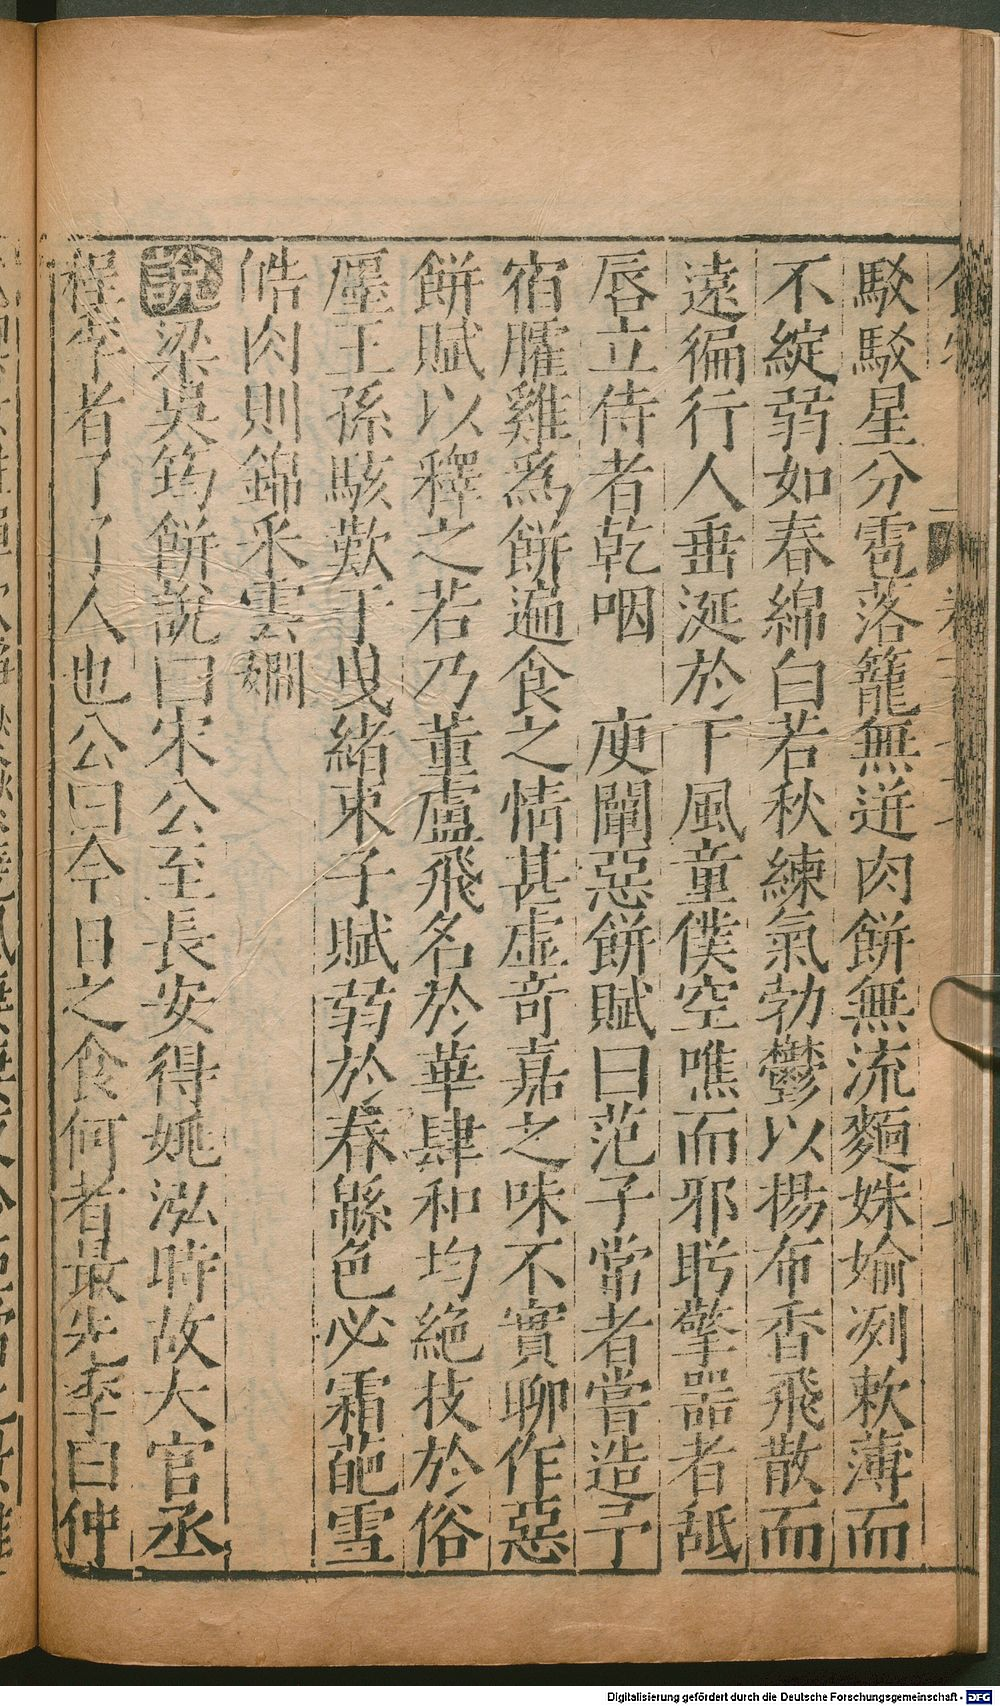 駮駮星分雹落籠無迸肉餅無流麵姝媮洌敕薄而
不綻弱如春綿白若秋練氣勃鬱以揚布香飛散而
遠徧行人垂涎於下風童僕空噍而邪盻擎器者䑛
唇立侍者乾咽 庾闡惡餅賦曰范子常者嘗造予
宿臛雞為餅遍食之情甚虛奇嘉之味不實聊作惡
餅賦以釋之若乃董盧飛名於華肆和均絕技於俗
㕓王孫駭歎于曳緒束子賦弱於春緜色必霜葩雪
皓肉則錦釆雲㜫
說梁吳筠餅說曰宋公至長安得姚泓時故大官丞
程季者了了人也公曰今日之食何者最先季曰仲
Digitalisierung gefördert durch die Deutsche Forschungsgemeinschaft - DFG